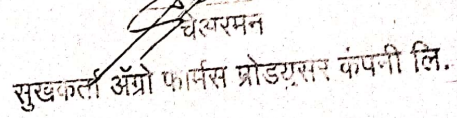 चेअरमन
सुखकर्ता ॲग्रो फार्मस प्रोडयुसर कंपनी लि.